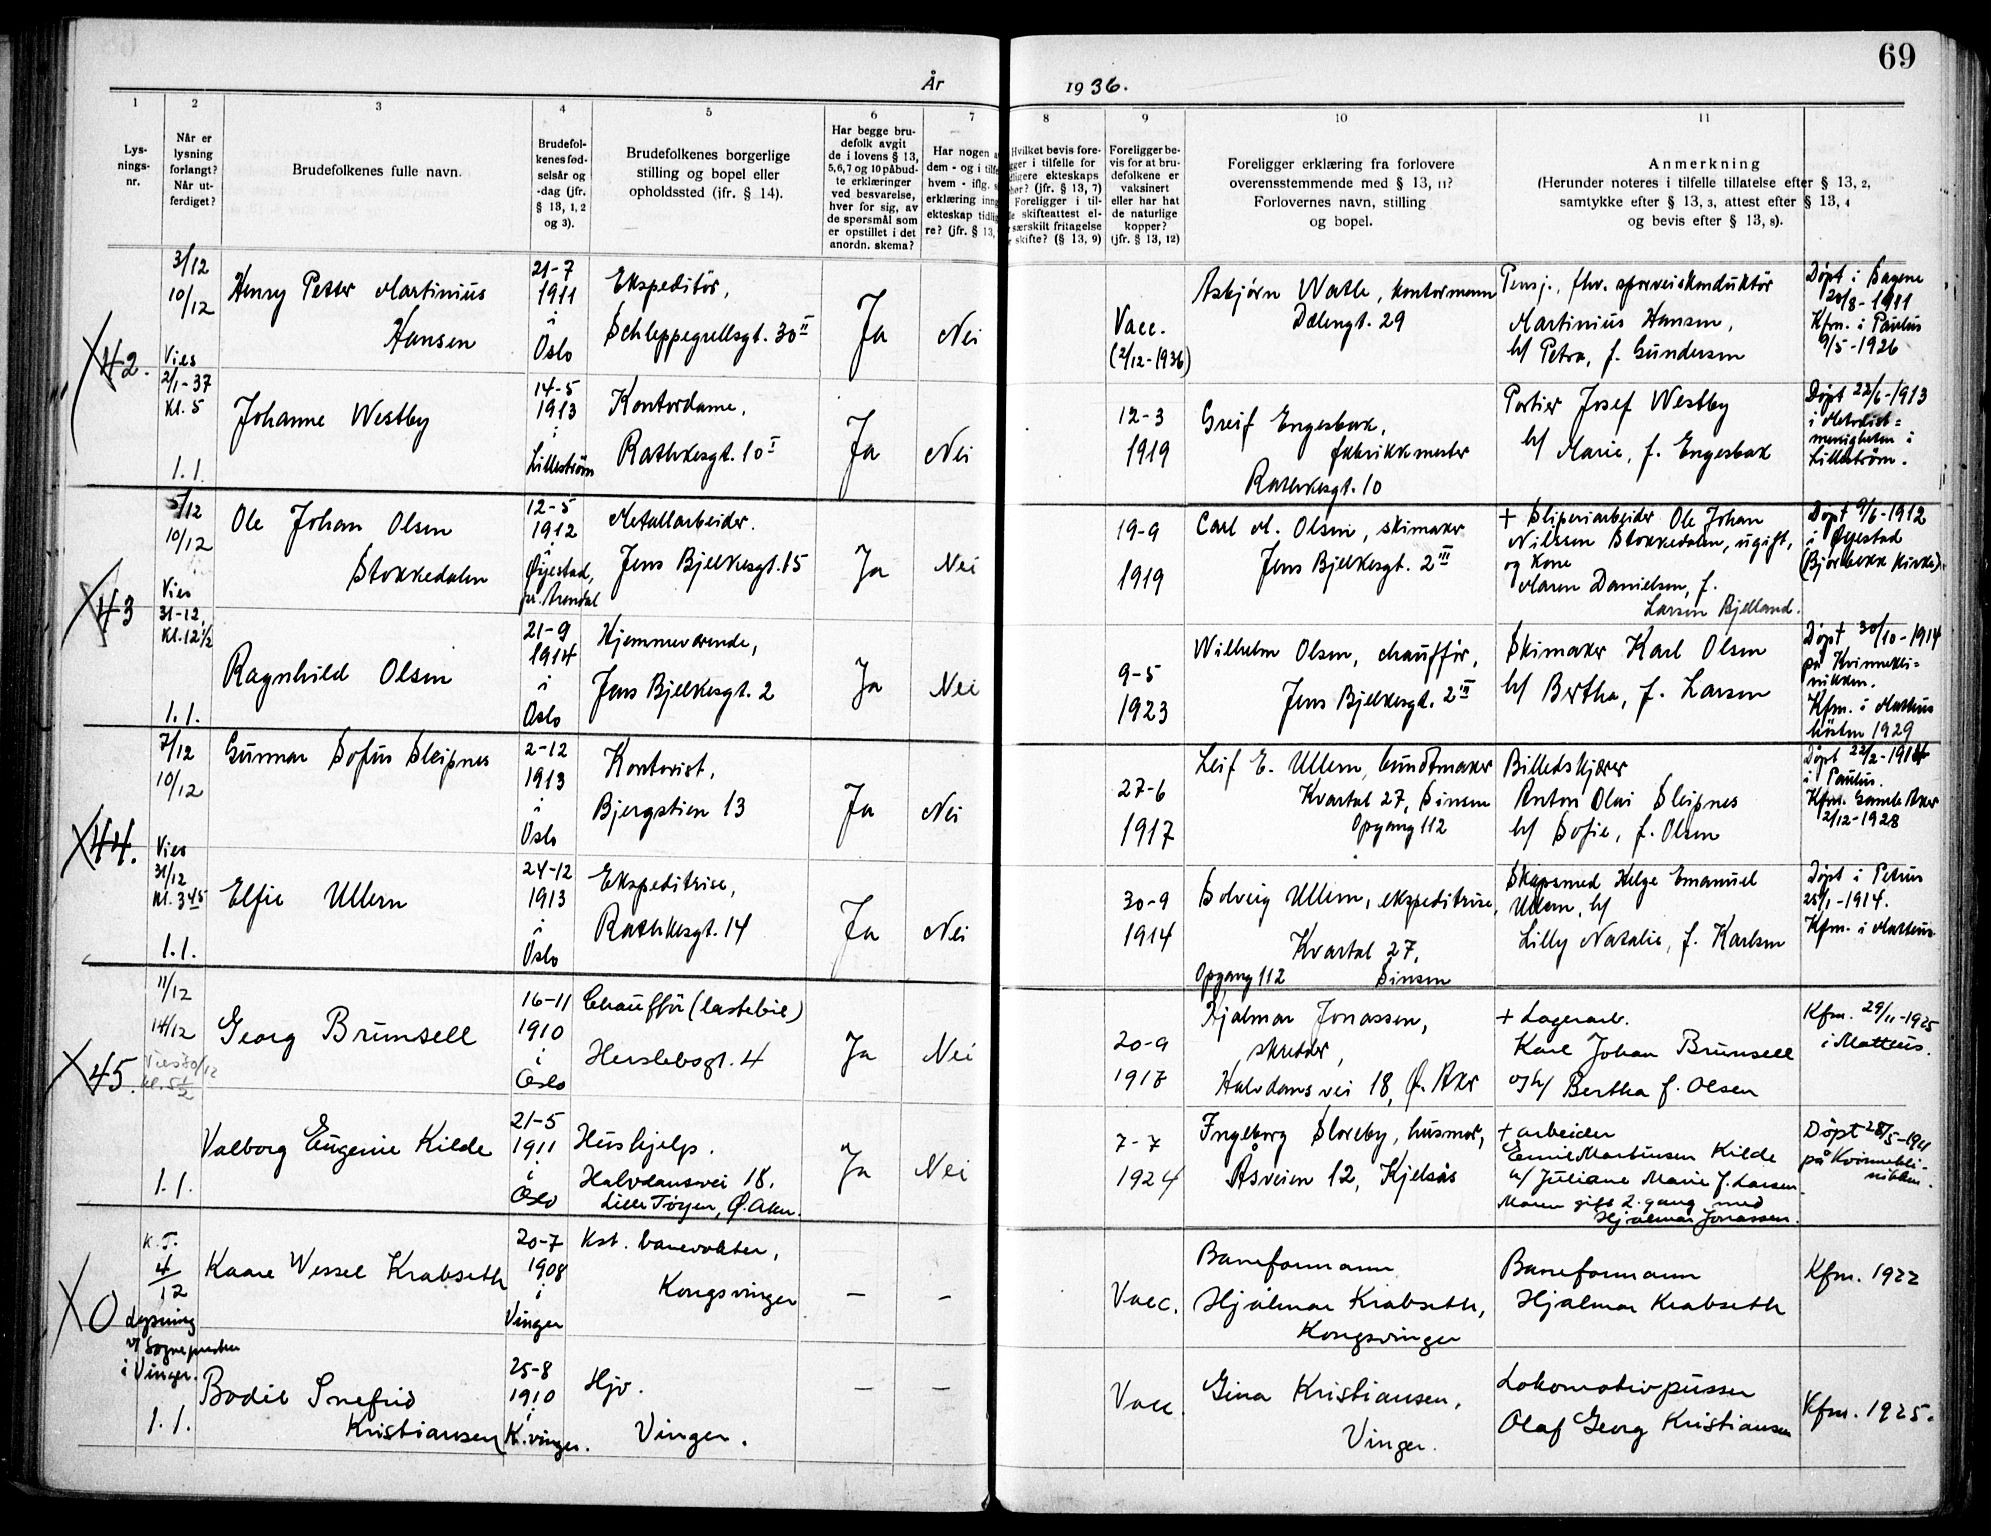 69
År 1936.
1 2 3 4 5 6 7 8 9 10 11
Lys-
nings-
nr.
Når er
lysning
forlangt?
Når ut-
ferdiget?
Brudefolkenes fulle navn.
Brudefol-
kenes fød-
selsår og
-dag (jfr.
§ 13, 1, 2
og 3).
Brudefolkenes borgerlige
stilling og bopel eller
opholdssted (ifr. § 14).
Har begge bru-
defolk avgit
de i lovens § 13,
5,6,7 og 10 påbud-
te erklæringer
ved besvarelse,
hver for sig, av
de spørsmål som
er opstillet i det
anordn. skema?
Har nogen a
dem - og i tilfe
hvem - iflg. s
erklæring inng
ekteskap tidlig
re? (jfr. § 13,
Hvilket bevis fore-
gger i tilfelle for
dligere ekteskaps
hør? (jfr. § 13, 7)
Foreligger i til-
le skifteattest el-
særskilt fritagelse
skifte? (§ 13, 9)
Foreligger be-
vis for at bru-
defolkene er
vaksinert
eller har hat
de naturlige
kopper?
(jfr. § 13, 12)
Foreligger erklæring fra forlovere
overensstemmende med § 13, 11?
Forlovernes navn, stilling
og bopel.
Anmerkning
(Herunder noteres i tilfelle tillatelse efter § 13, 2,
samtykke efter § 13, 3, attest efter § 13, 4
og bevis efter § 13, 8).
42.
3/12
10/12
Vies
2/1-37
Kl. 5
1.1.
Henry Petter Martinius
Hansen
21-7
1911
i
Oslo
Ekspeditør,
Schleppegrellsgt. 30 II
Ja
Nei
Vacc.
(2/12-1936)
Asbjørn Watle, kontormann
Dælengt. 29
Pensj., fhv. sporveiskonduktør
Martinius Hansen,
h/ Petra, f. Gundersen
Døpt i Sagene
20/8-1911
Kfm. i Paulus
9/5-1926
Johanne Westby
14-5
1913
i
Lillestrøm
Kontordame,
Rathkesgt. 10 I
Ja
Nei
12-3
1919
Greif Engesbak,
fabrikkmester
Rathkesgt. 10
Portier Josef Westby
h/ Marie, f. Engesbak
Døpt 22/6-1913
i Metodist=
menigheten i
Lillestrøm.
43
5/12
10/12
Vies
31-12.
Kl. 12 1/2
1.1.
Ole Johan Olsen
Stokkedalen
12-5
1912
i
Øyestad,
pr. Arendal
Metallarbeider.
Jens Bjelkesgt. 15
Ja
Nei
19-9
1919
Carl M. Olsen, skimaker
Jens Bjelkesgt. 2 III
+ Sliperiarbeider Ole Johan
Nilssen Stokkedalen, ugift,
og kone
Maren Danielsen, f.
Larsen Bjelland.
Døpt 9/6-1912
i Øyestad
(Bjorbekk Kirke).
Ragnhild Olsen
21-9
1914
i
Oslo
Hjemmeværende,
Jens Bjelkesgt. 2
Ja
Nei
9-5
1923
Wilhelm Olsen, chauffør,
Jens Bjelkesgt. 2 III
Skimaker Karl Olsen
h/ Bertha, f. Larsen
Døpt 30/10-1914
på Kvinnekli-
nikken.
Kfm. i Matteus
høsten 1929
44.
7/12
10/12
Vies
31/12
Kl. 3 45
1.1.
Gunnar Sofus Sleipnes
2-12
1913
i
Oslo
Kontorist,
Bjergstien 13
Ja
Nei
27-6
1917
Leif E. Ullern, buntmaker
Kvartal 27, Sinsen
Opgang 112
Billedskjærer
Anton Olai Sleipnes
h/ Sofie, f. Olsen
Døpt 22/2-1914
i Paulus.
Kfm. Gamle Aker
2/12-1928
Elfie Ullern
24-12
1913
i
Oslo
Ekspeditrise,
Rathkesgt. 14
Ja
Nei
30-9
1914
Solveig Ullern, ekspeditrise,
Kvartal 27,
Opgang 112 Sinsen
Skapsmed Helge Emanuel
Ullern, h/
Lilly Natalie, f. Karlsen
Døpt i Petrus
25/1-1914.
Kfm. i Matteus
45.
11/12
14/12
Vies 30/12
kl. 5 1/2
1.1.
Georg Brunsell
16-11
1910
i
Oslo
Chauffør (lastebil)
Herslebsgt. 4
Ja
Nei
20-9
1917
Hjalmar Jonassen,
skredder,
Halvdans vei 18, Ø. Aker
+ Lagerarb.
Karl Johan Brunsell
og h/ Bertha f. Olsen
Kfm. 29/11-1925
i Matteus.
Valborg Eugenie Kilde
21-5
1911
i
Oslo
Hushjelp.
Halvdansvei 18.
Lille Tøyen, Ø. Aker.
Ja
Nei
7-7
1924
Ingeborg Sloreby, husmor,
Åsveien 12, Kjelsås
+ arbeider
Emil Martinsen Kilde
h/ Juliane Marie f. Larsen.
Moren gift 2. gang med
Hjalmar Jonassen.
Døpt 28/5-1911
på Kvinnekli-
nikken.
0
K.T.
4/12
Lysning
v/ Sognepresten
i Vinger.
1.1.
Kaare Wessel Krabseth
20-7
1908
i
Vinger
Kst. banevokter,
Kongsvinger
—
—
Vacc.
Baneformann
Hjalmar Krabseth,
Kongsvinger
Baneformann
Hjalmar Krabseth
Kfm. 1922
Bodil Snefrid
Kristiansen
25-8
1910
i
K.vinger.
Hjv.
Vinger.
—
—
Vacc.
Gina Kristiansen,
Vinger.
Lokomotivpusser
Olaf Georg Kristiansen
Kfm. 1925.